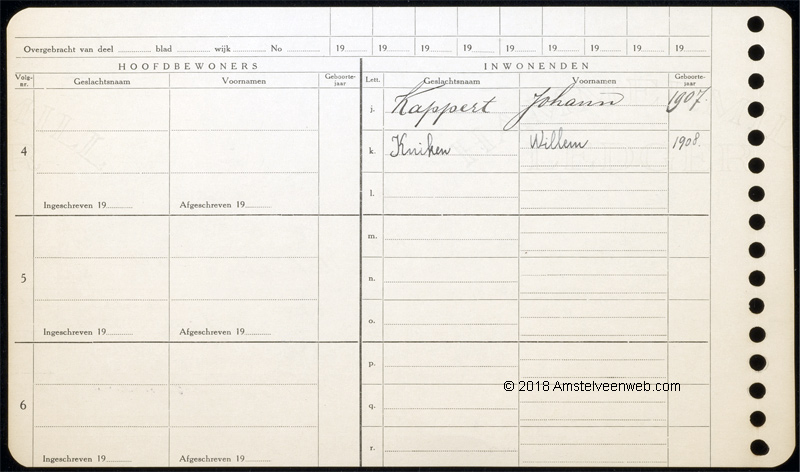 Overgebracht van deel blad wijk No 19 19 19 19 19 19 19 19 19
HOOFDBEWONERS INWONENDEN
Volg-nr. Geslachtsnaam Voornamen Geboorte-jaar Lett. Geslachtsnaam Voornamen Geboorte-jaar
j. Kappert Johann 1907.
4 k. Kniken Willem 1908.
l.
Ingeschreven 19 Afgeschreven 19
m.
5 n.
o.
Ingeschreven 19 Afgeschreven 19
p.
© 2018 Amstelveenweb.com
6 q.
r.
Ingeschreven 19 Afgeschreven 19